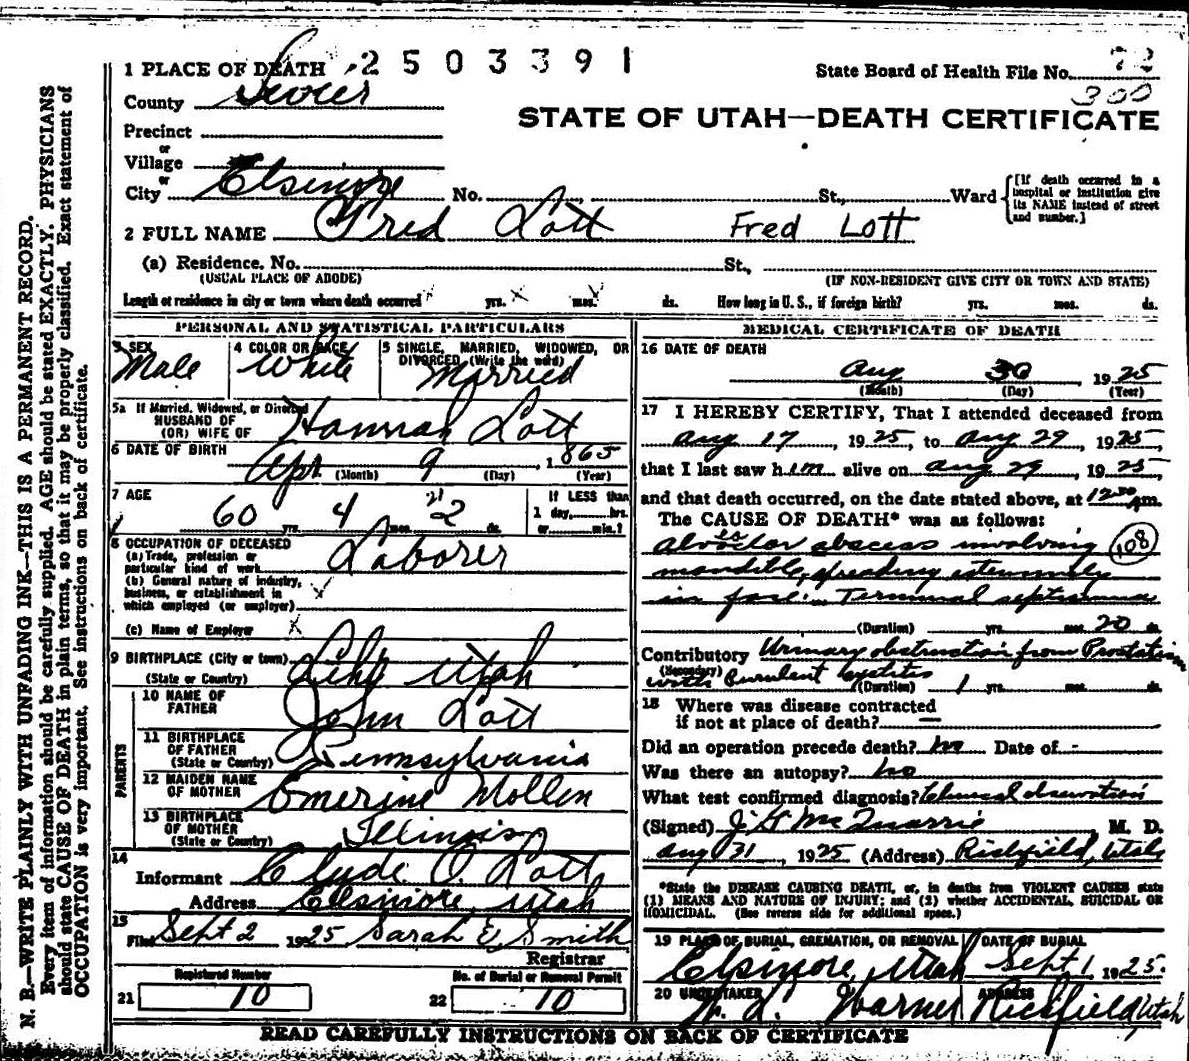 1 PLACE OF DEATH 2503391
State Board of Health File No. 72
300
County Sevier
STATE OF UTAH—DEATH CERTIFICATE
Precinct
or
Village
or
City Elsinore No. St., Ward
[If death occurred in a hospital or institution give its NAME instead of street and number.]
2 FULL NAME Fred Lott Fred Lott
(a) Residence. No. St.,
(USUAL PLACE OF ABODE) (IF NON-RESIDENT GIVE CITY OR TOWN AND STATE)
Length of residence in city or town where death occurred yrs. mos. ds. How long in U. S., if foreign birth? yrs. mos. ds.
PERSONAL AND STATISTICAL PARTICULARS
3 SEX
Male
4 COLOR OR RACE
White
5 SINGLE, MARRIED, WIDOWED, OR
DIVORCED (Write the word)
Married
5a If Married, Widowed, or Divorced
HUSBAND OF
(OR) WIFE OF Hannah Lott
6 DATE OF BIRTH
Apr 9, 1865
(Month) (Day) (Year)
7 AGE
60 yrs. 4 mos. 21 ds.
If LESS than
1 day, hrs.
or min.?
8 OCCUPATION OF DECEASED
(a) Trade, profession or
particular kind of work Laborer
(b) General nature of industry,
business, or establishment in
which employed (or employer)
(c) Name of Employer
9 BIRTHPLACE (City or town)
(State or Country) Lehi Utah
PARENTS
10 NAME OF
FATHER John Lott
11 BIRTHPLACE
OF FATHER
(State or Country) Pennsylvania
12 MAIDEN NAME
OF MOTHER Emerine Mollen
13 BIRTHPLACE
OF MOTHER
(State or Country) Illinois
14
Informant Clyde O. Lott
Address Elsinore Utah
15
Filed Sept 2 1925 Sarah E Smith
Registrar
Registered Number No. of Burial or Removal Permit
21 10 22 10
MEDICAL CERTIFICATE OF DEATH
16 DATE OF DEATH
Aug 30, 1925
(Month) (Day) (Year)
17 I HEREBY CERTIFY, That I attended deceased from
Aug 17, 1925, to Aug 29, 1925,
that I last saw him alive on Aug 29, 1925,
and that death occurred, on the date stated above, at 12 30 m.
The CAUSE OF DEATH* was as follows:
abscess involving 108
mandible, spreading extensively
in face. Terminal septicemia
(Duration) yrs. mos. 20 ds.
Contributory Urinary obstruction from
(Secondary) with Purulent cystitis
(Duration) 1 yrs. mos. ds.
18 Where was disease contracted
if not at place of death? —
Did an operation precede death? no Date of -
Was there an autopsy? no
What test confirmed diagnosis? Clinical observation
(Signed) J. G. McQuarrie M. D.
Aug 31, 1925 (Address) Richfield, Utah
*State the DISEASE CAUSING DEATH, or, in deaths from VIOLENT CAUSES state
(1) MEANS AND NATURE OF INJURY; and (2) whether ACCIDENTAL, SUICIDAL OR
HOMICIDAL. (See reverse side for additional space.)
19 PLACE OF BURIAL, CREMATION, OR REMOVAL DATE OF BURIAL
Elsinore, Utah Sept 1 1925.
20 UNDERTAKER ADDRESS
Warner Richfield, Utah
READ CAREFULLY INSTRUCTIONS ON BACK OF CERTIFICATE
N. B.—WRITE PLAINLY WITH UNFADING INK—THIS IS A PERMANENT RECORD.
Every item of information should be carefully supplied. AGE should be stated EXACTLY. PHYSICIANS
should state CAUSE OF DEATH in plain terms, so that it may be properly classified. Exact statement of
OCCUPATION is very important. See instructions on back of certificate.